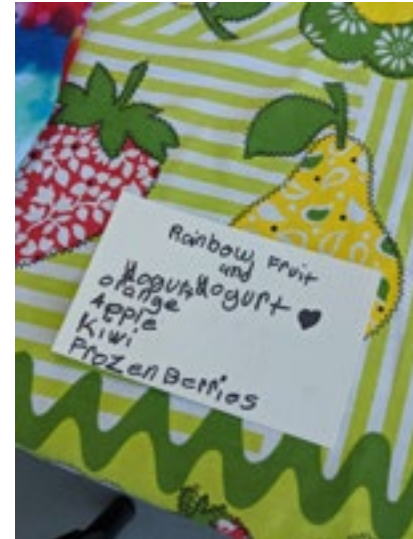 Rainbow Fruit
and
Yogurt Yogurt ♥
orange
Apple
Kiwi
Frozen Berries